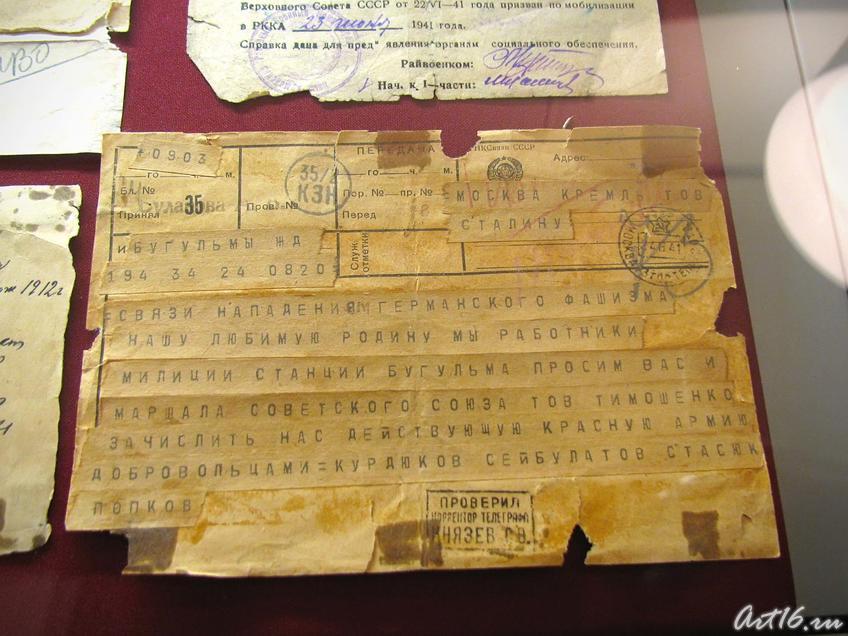 Верховного Совета СССР от 22/VI—41 года призван по мобилизации
в РККА 23 июня 1941 года.
Справка дана для пред'явления органам социального обеспечения.
Райвоенком:
Нач. к 1—части:
1912г
0903
го ч. м.
Бл. №
Принял 35
Пров. №
35/
КЗН
ПЕРЕДАЧА
го ч. м.
Пор. № пр. №
Перед
Служ. отметки
НКСвязи СССР
Адрес:
МОСКВА КРЕМЛЬ ТОВ
СТАЛИНУ
БУГУЛЬМЫ ЖД
194 34 24 0820
=СВЯЗИ НАПАДЕНИЯ ГЕРМАНСКОГО ФАШИЗМА
НАШУ ЛЮБИМУЮ РОДИНУ МЫ РАБОТНИКИ
МИЛИЦИИ СТАНЦИИ БУГУЛЬМА ПРОСИМ ВАС И
МАРШАЛА СОВЕТСКОГО СОЮЗА ТОВ ТИМОШЕНКО
ЗАЧИСЛИТЬ НАС ДЕЙСТВУЮЩУЮ КРАСНУЮ АРМИЮ
ДОБРОВОЛЬЦАМИ=КУРДЮКОВ СЕЙБУЛАТОВ СТАСЮК
ПОПКОВ
ПРОВЕРИЛ
КОРРЕКТОР ТЕЛЕГРАФА
КНЯЗЕВ Г.В.
Art16.ru